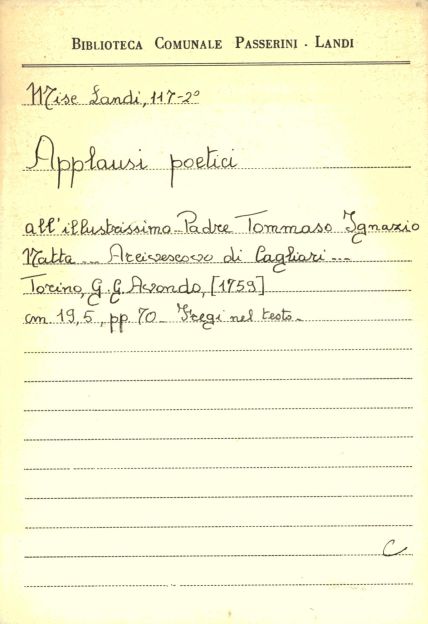 BIBLIOTECA COMUNALE PASSERINI - LANDI
Misc Landi, 117-2°
Applausi poetici
all'illustrissimo Padre Tommaso Ignazio
Natta ... Arcivescovo di Cagliari ...
Torino, G. G. Avondo, [1759]
cm 19,5, pp. 70 - Fregi nel testo -
C